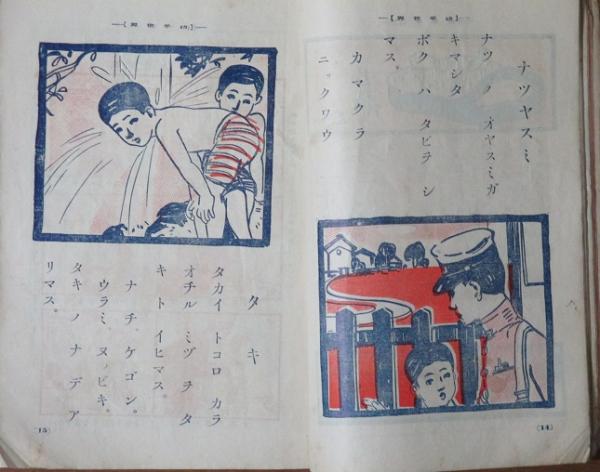 ナツヤスミ
ナツ ノ オヤスミガ
キマシタ
ボク ハ タビヲ シ
マス。
カマクラ
ニックワウ
(14)
タキ
タカイ トコロ カラ
オチル ミヅ ヲ タ
キ ト イヒマス。
ナチ、ケゴン。
ウラミ、ヌノビキ。
タキ ノ ナ デ ア
リマス。
(15)